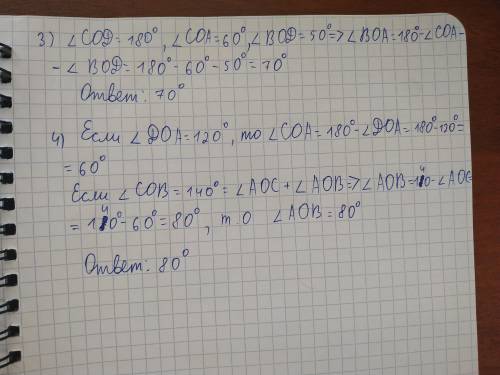 3) ∠COD=180°, ∠COA=60°, ∠BOD=50°=>∠BOA=180°-∠COA-
- ∠BOD=180°-60°-50°=70°
Ответ: 70°
4) Если ∠DOA=120°, то ∠COA=180°-∠DOA=180°-120°=
= 60°
Если ∠COB=140°=∠AOC+∠AOB=>∠AOB=140-∠AOC
= 140°-60°=80°, т.о ∠AOB=80°
Ответ: 80°